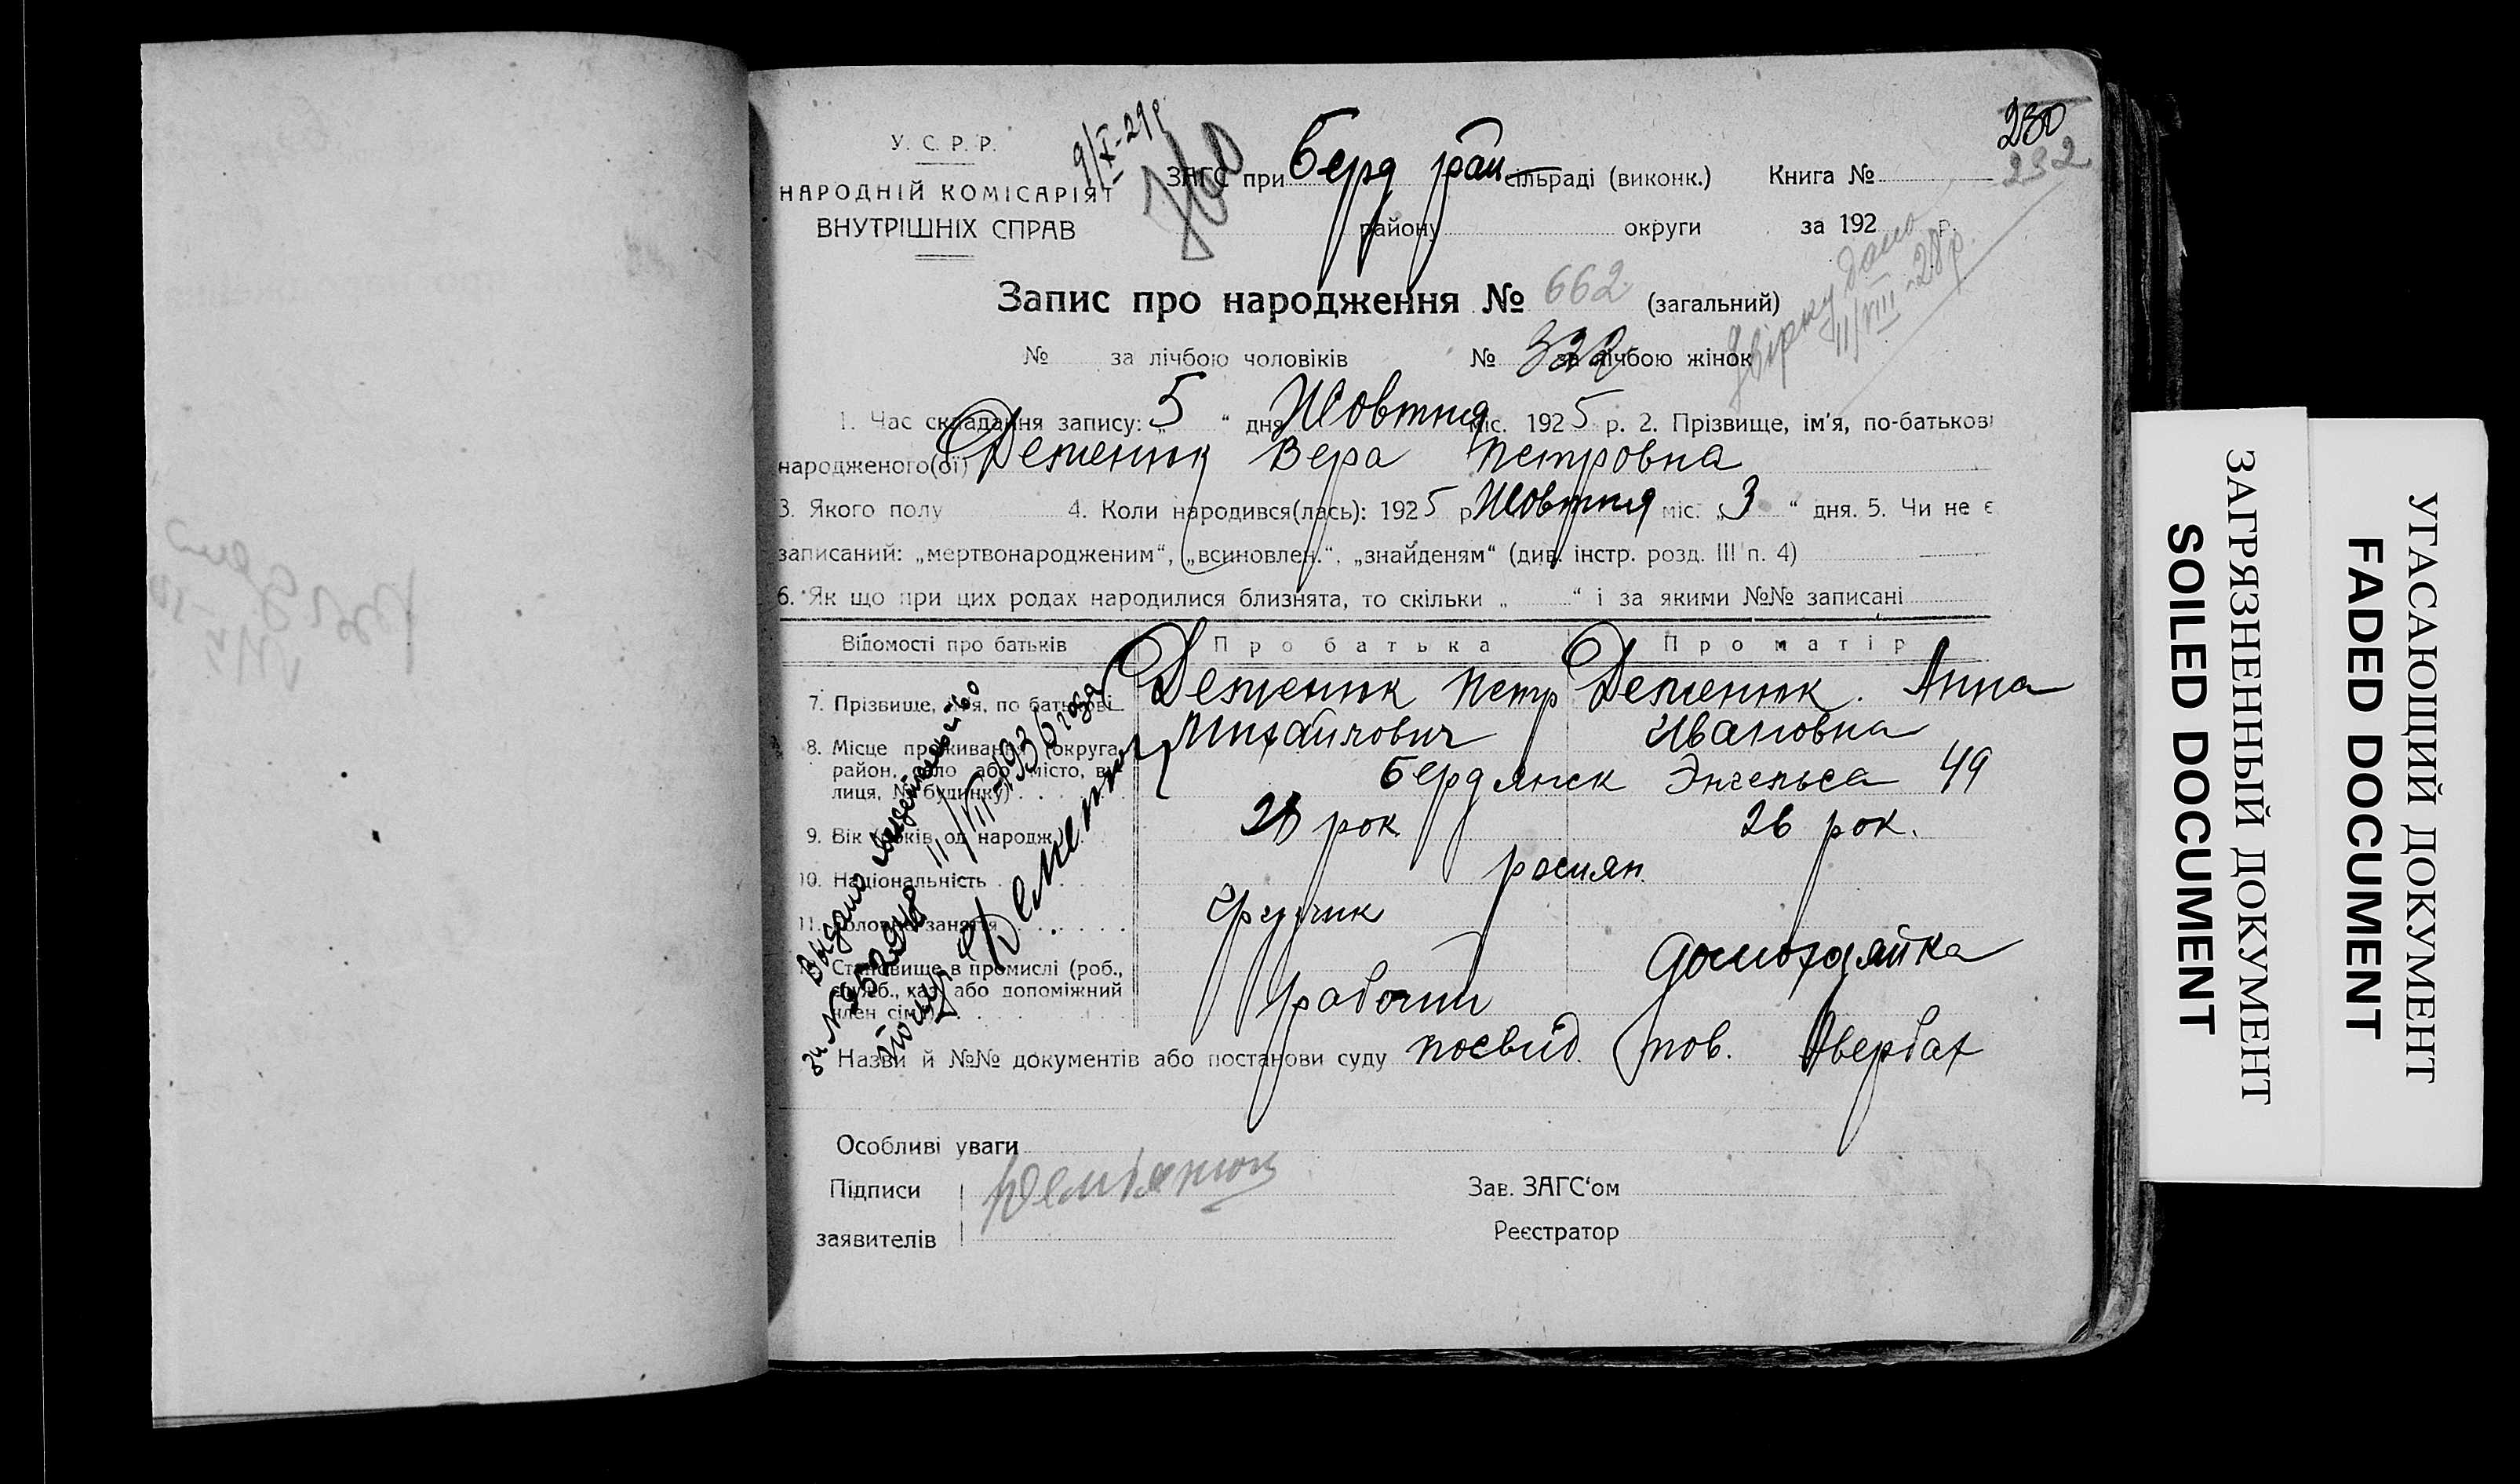 230
232
У. С. Р. Р.
НАРОДНІЙ КОМІСАРІЯТ
ВНУТРІШНІХ СПРАВ
9/X-29р
ЗАГС при Берд рай сільраді (виконк.) Книга №
району округи за 192 р.
Запис про народження № 662 (загальний)
№ за лічбою чоловіків № 322 за лічбою жінок
Звірку дано
11/VIII-28р.
1. Час складання запису: „ 5 “ дня Жовтня міс. 1925 р. 2. Прізвище, ім'я, по-батькові
народженого(ої) Деменюк Вера Петровна
3. Якого полу 4. Коли народився(лась): 1925 р Жовтня міс. „ 3 “ дня. 5. Чи не є
записаний: „мертвонародженим“, „всиновлен.“, „знайденям“ (див. інстр. розд. III п. 4)
6. Як що при цих родах народилися близнята, то скільки „ “ і за якими №№ записані
Відомості про батьків Про батька Про матір
7. Прізвище, ім'я, по батькові Деменюк Петр Деменюк Анна
Михайлович Ивановна
8. Місце проживання (округа,
район, село або місто, ву-
лиця, № будинку) Бердянск Энгельса 49
9. Вік (років од народж.) 28 рок 26 рок.
10. Національність росиян.
11. Головне заняття Грузчик
домохазяйка
12. Становище в промислі (роб.,
служб., хаз. або допоміжний
член сім'ї) рабочий
Назви й №№ документів або постанови суду посвид. тов. Авербах
Выдано свидетельство
за № 952948 11/VII-1936 года
отцу Деменюк
Особливі уваги
Підписи
заявителів
Демьянюк
Зав. ЗАГС'ом
Реєстратор
ЗАГРЯЗНЕННЫЙ ДОКУМЕНТ
SOILED DOCUMENT
УГАСАЮЩИЙ ДОКУМЕНТ
FADED DOCUMENT